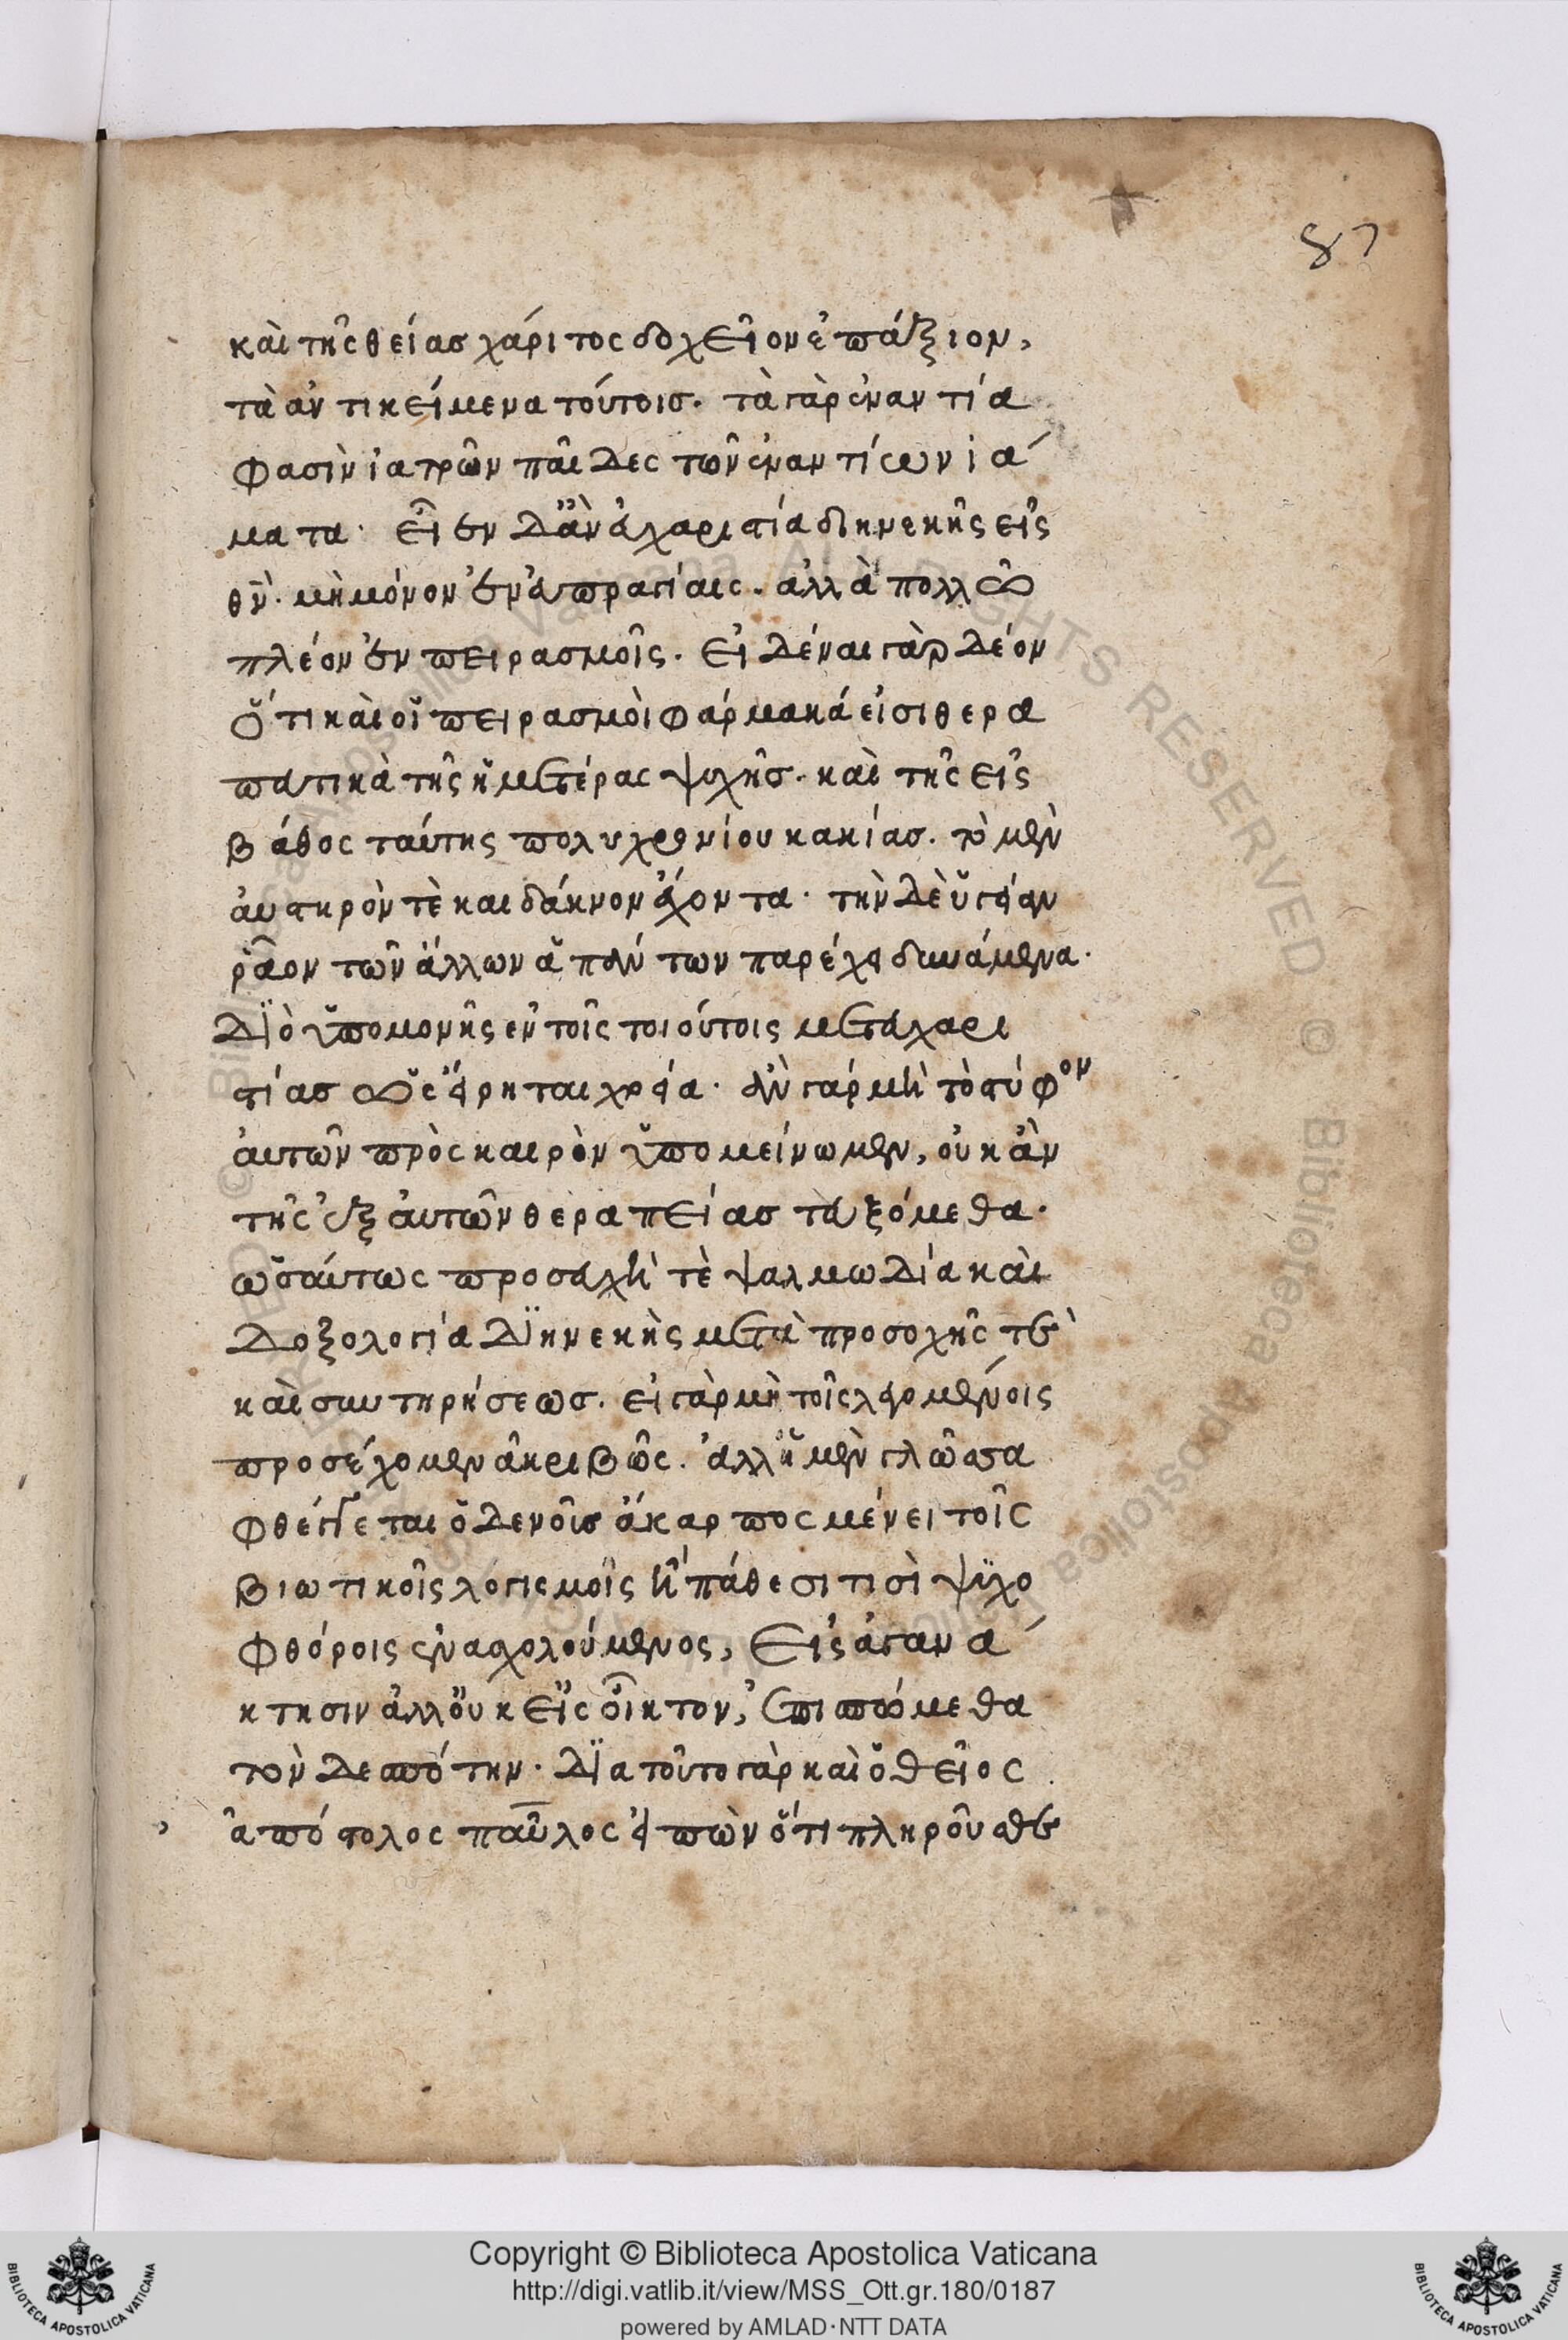 87
καὶ τῆς θείας χάριτος δοχεῖον ἐπάξιον,
τὰ ἀντικείμενα τούτοις. τὰ γὰρ ἐναντία
φασὶν ἰατρῶν παῖδες τῶν ἐναντίων ἰά
ματα. εἴη οὖν δ' ἂν εὐχαριστία διηνεκὴς εἰς
θν̅. μὴ μόνον ἐν εὐπραγίαις. ἀλλὰ πολλῶ
πλέον ἐν πειρασμοῖς. εἰδέναι γὰρ δέον
ὅτι καὶ οἱ πειρασμοὶ φάρμακά εἰσι θερα
πευτικὰ τῆς ἡμετέρας ψυχῆς. καὶ τῆς εἰς
βάθος ταύτης πολυχρονίου κακίας. τὸ μὲν
αὐστηρόν τὲ καὶ δάκνον ἔχοντα. τὴν δὲ ὑγείαν
ῥᾶον τῶν ἄλλων ἁπάντων παρέχειν δυνάμενα.
Διὸ ὑπομονῆς ἐν τοῖς τοιούτοις μετ' εὐχαρι
στίας ὡς εἴρηται χρεία. ἂν γάρ μὴ τὸ στύφον
αὐτῶν πρὸς καιρὸν ὑπομείνωμεν, οὐκ ἂν
τῆς ἐξ αὐτῶν θεραπείας τευξόμεθα.
ὡσαύτως προσευχή τὲ ψαλμωδία καὶ
Δοξολογία Διηνεκὴς μετὰ προσοχῆς τὲ
καὶ συντηρήσεως. εἰ γὰρ μὴ τοῖς λεγομένοις
προσέχομεν ἀκριβῶς. ἀλλ' ἡ μὲν γλῶσσα
φθέγγεται ὁ δὲ νοῦς ἄκαρπος μένει τοῖς
βιωτικοῖς λογισμοῖς ἢ πάθεσι τισὶ ψυχο
φθόροις ἐνασχολούμενος, Εἰς ἀγανά
κτησιν ἀλλ' οὐκ εἰς οἶκτον, ἐπισπώμεθα
τὸν Δεσπότην. Διὰ τοῦτο γὰρ καὶ ὁ θεῖος
ἀπόστολος παῦλος εἰπὼν ὅτι πληροῦσθε
Copyright © Biblioteca Apostolica Vaticana
http://digi.vatlib.it/view/MSS_Ott.gr.180/0187
powered by AMLAD·NTT DATA
BIBLIOTECA APOSTOLICA VATICANA
BIBLIOTECA APOSTOLICA VATICANA